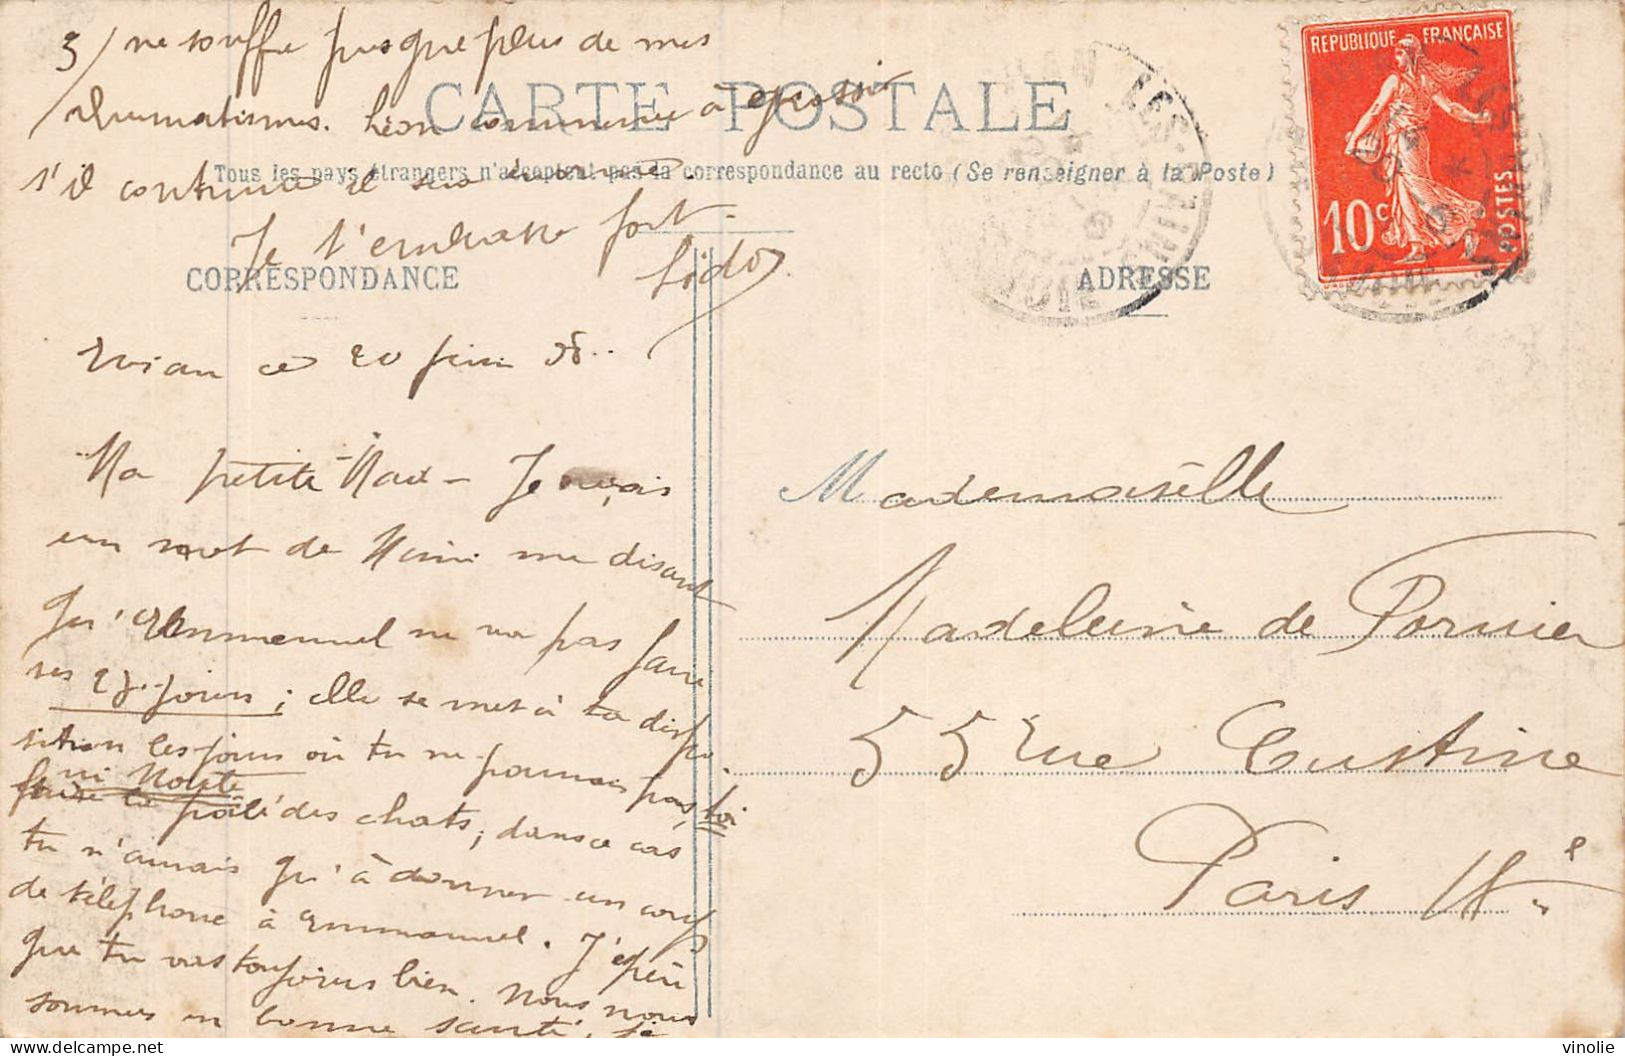 3/ ne souffre presque plus de mes
rhumatismes. Léon commence à grossir
CARTE POSTALE
Tous les pays étrangers n'acceptent pas la correspondance au recto (Se renseigner à la Poste)
s'il continue il sera
Je t'embrasse fort.
Lido
CORRESPONDANCE
ADRESSE
REPUBLIQUE FRANÇAISE
10c POSTES
Evian ce 20 juin
Ma petite Mad - Je reçois
un mot de Mimi me disant
qu'Emmanuel ne va pas faire
ses 27 jours; elle se met à ta dispo
sition les jours où tu ne pourrais pas, toi
ni Moute
faire la pâtée des chats; dans ce cas
tu n'aurais qu'à donner un coup
de téléphone à Emmanuel. J'espère
que tu vas toujours bien. Nous nous
sommes en bonne santé, je
Mademoiselle
Madeleine de Pornier
55 Rue Custine
Paris
vinolie